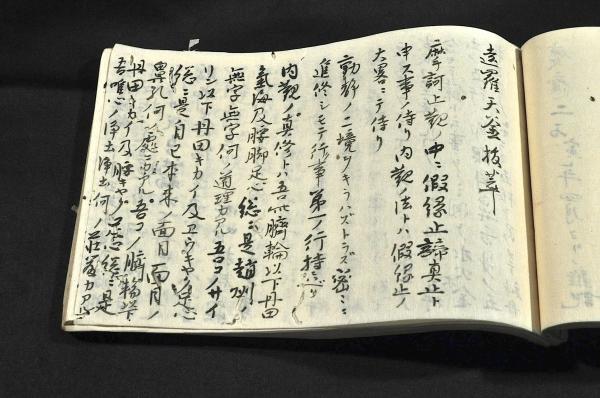 遠羅天釜抜萃
摩訶止観ノ中ニ假縁止諦真止ト
申ス事ノ侍リ内観ノ法トハ假縁止ノ
大畧ニテ侍リ
動静ノ二境ヲキラハズトラズ密ニ
進修シモテ行事第一ノ行持ナリ
内観ノ真修トハ吾此臍輪以下丹田
氣海及腰脚足心総ニ是趙州ノ
無字無字何ノ道理カアル吾コノサイ
リン以下丹田キカイ及ヨウキヤク足心
総ニ是自己本来ノ面目面目ノ
鼻孔何ノ處ニカアル吾コノ臍輪以下
丹田キカイ及腰キャク足心総ニ是
吾唯心ノ浄土浄土何ノ荘厳カアル